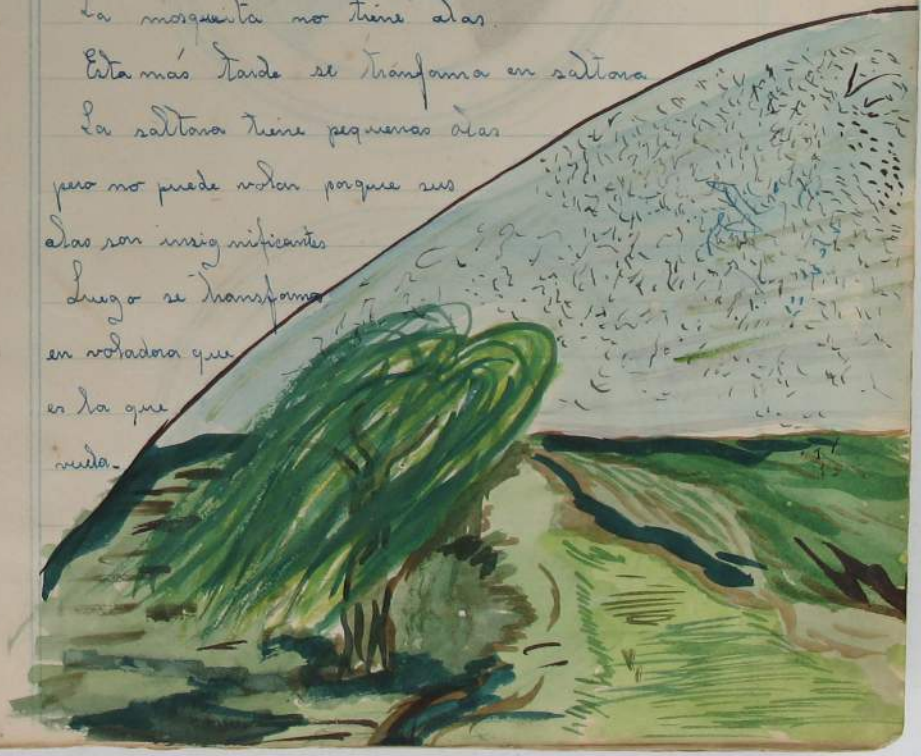 La mosquita no tiene alas.
Esta más tarde se tránforma en saltona
La saltona tiene pequenas alas
pero no puede volar porque sus
alas son insig nificantes
Luego se transforma
en voladora que
es la que
vuela.